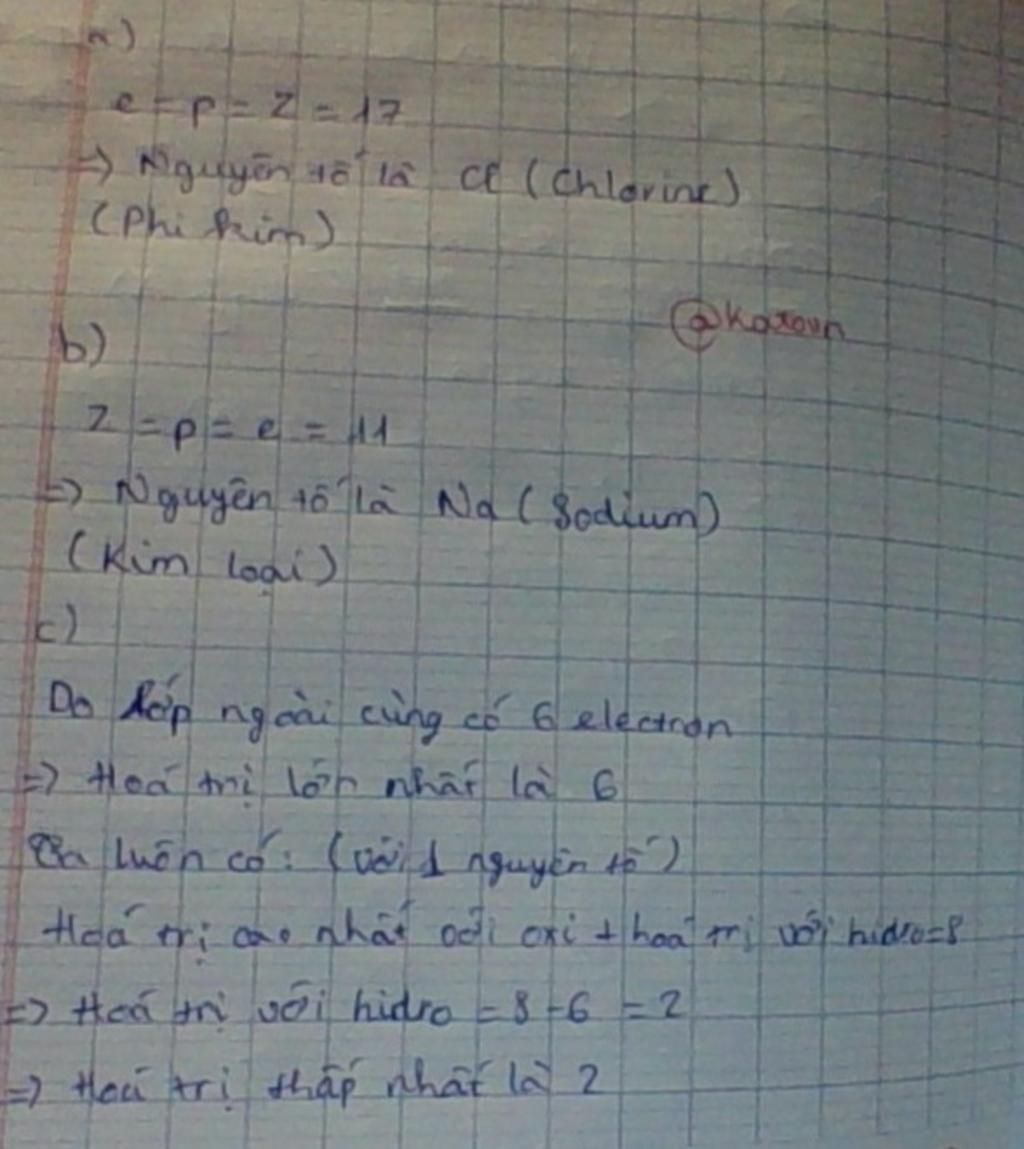 a)
e = p = Z = 17
=> Nguyên tố là Cl (Chlorine)
(Phi kim)
@Kaxoun
b)
Z = p = e = 11
=> Nguyên tố là Na (Sodium)
(Kim loại)
c)
Do lớp ngoài cùng có 6 electron
=> Hoá trị lớn nhất là 6
Ta luôn có: (với 1 nguyên tố)
Hoá trị cao nhất với oxi + hoá trị với hidro=8
=> Hoá trị với hidro = 8 - 6 = 2
=> Hoá trị thấp nhất là 2